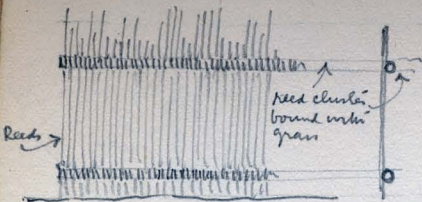 Reeds
reed clusters
bound with
grass